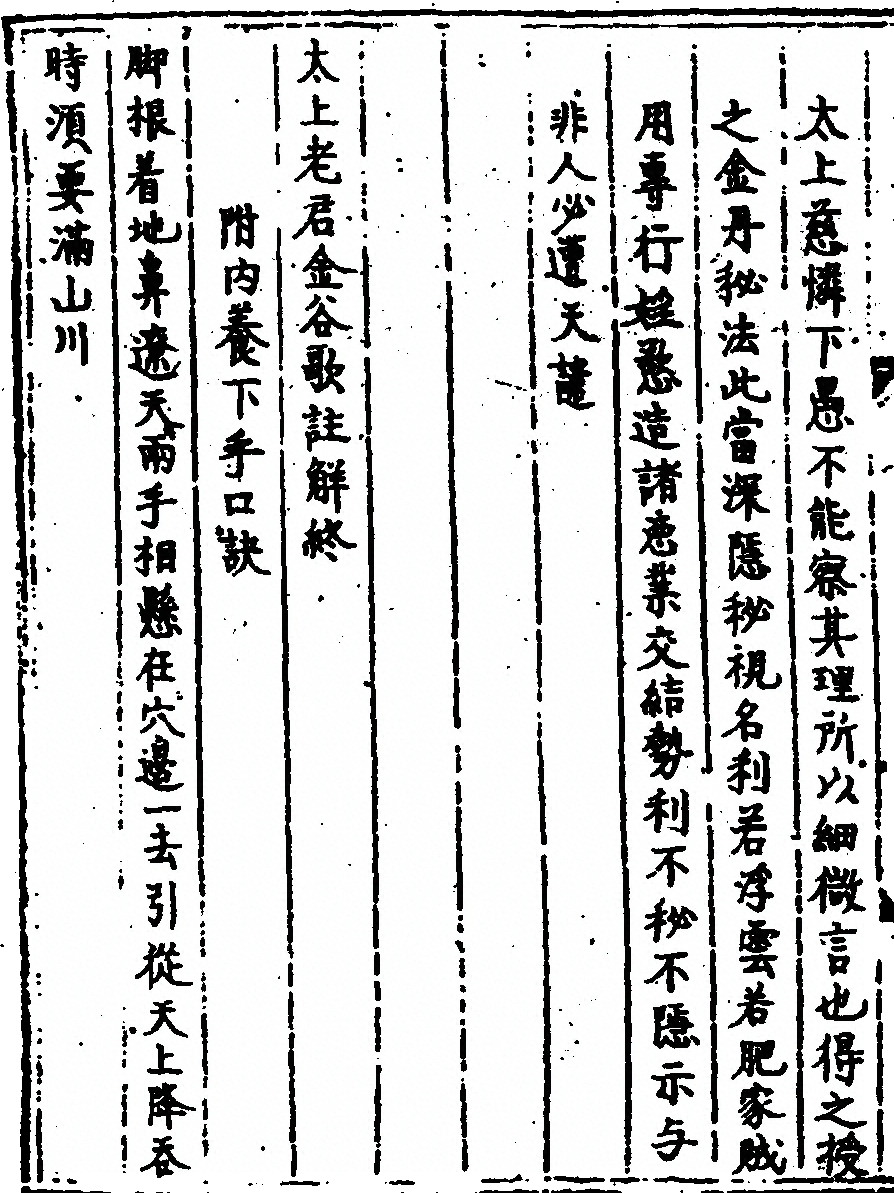 太上慈憐下愚不能察其理所以細微言也得之授
之金丹秘法此當深隱秘視名利若浮雲若肥家賊
用專行婬慾造諸惡業交結勢利不秘不隱示与
非人必遭天譴
太上老君金谷歌註解終
附內養下手口訣
脚根着地鼻遼天兩手相懸在穴邊一去引從天上降吞
時須要滿山川